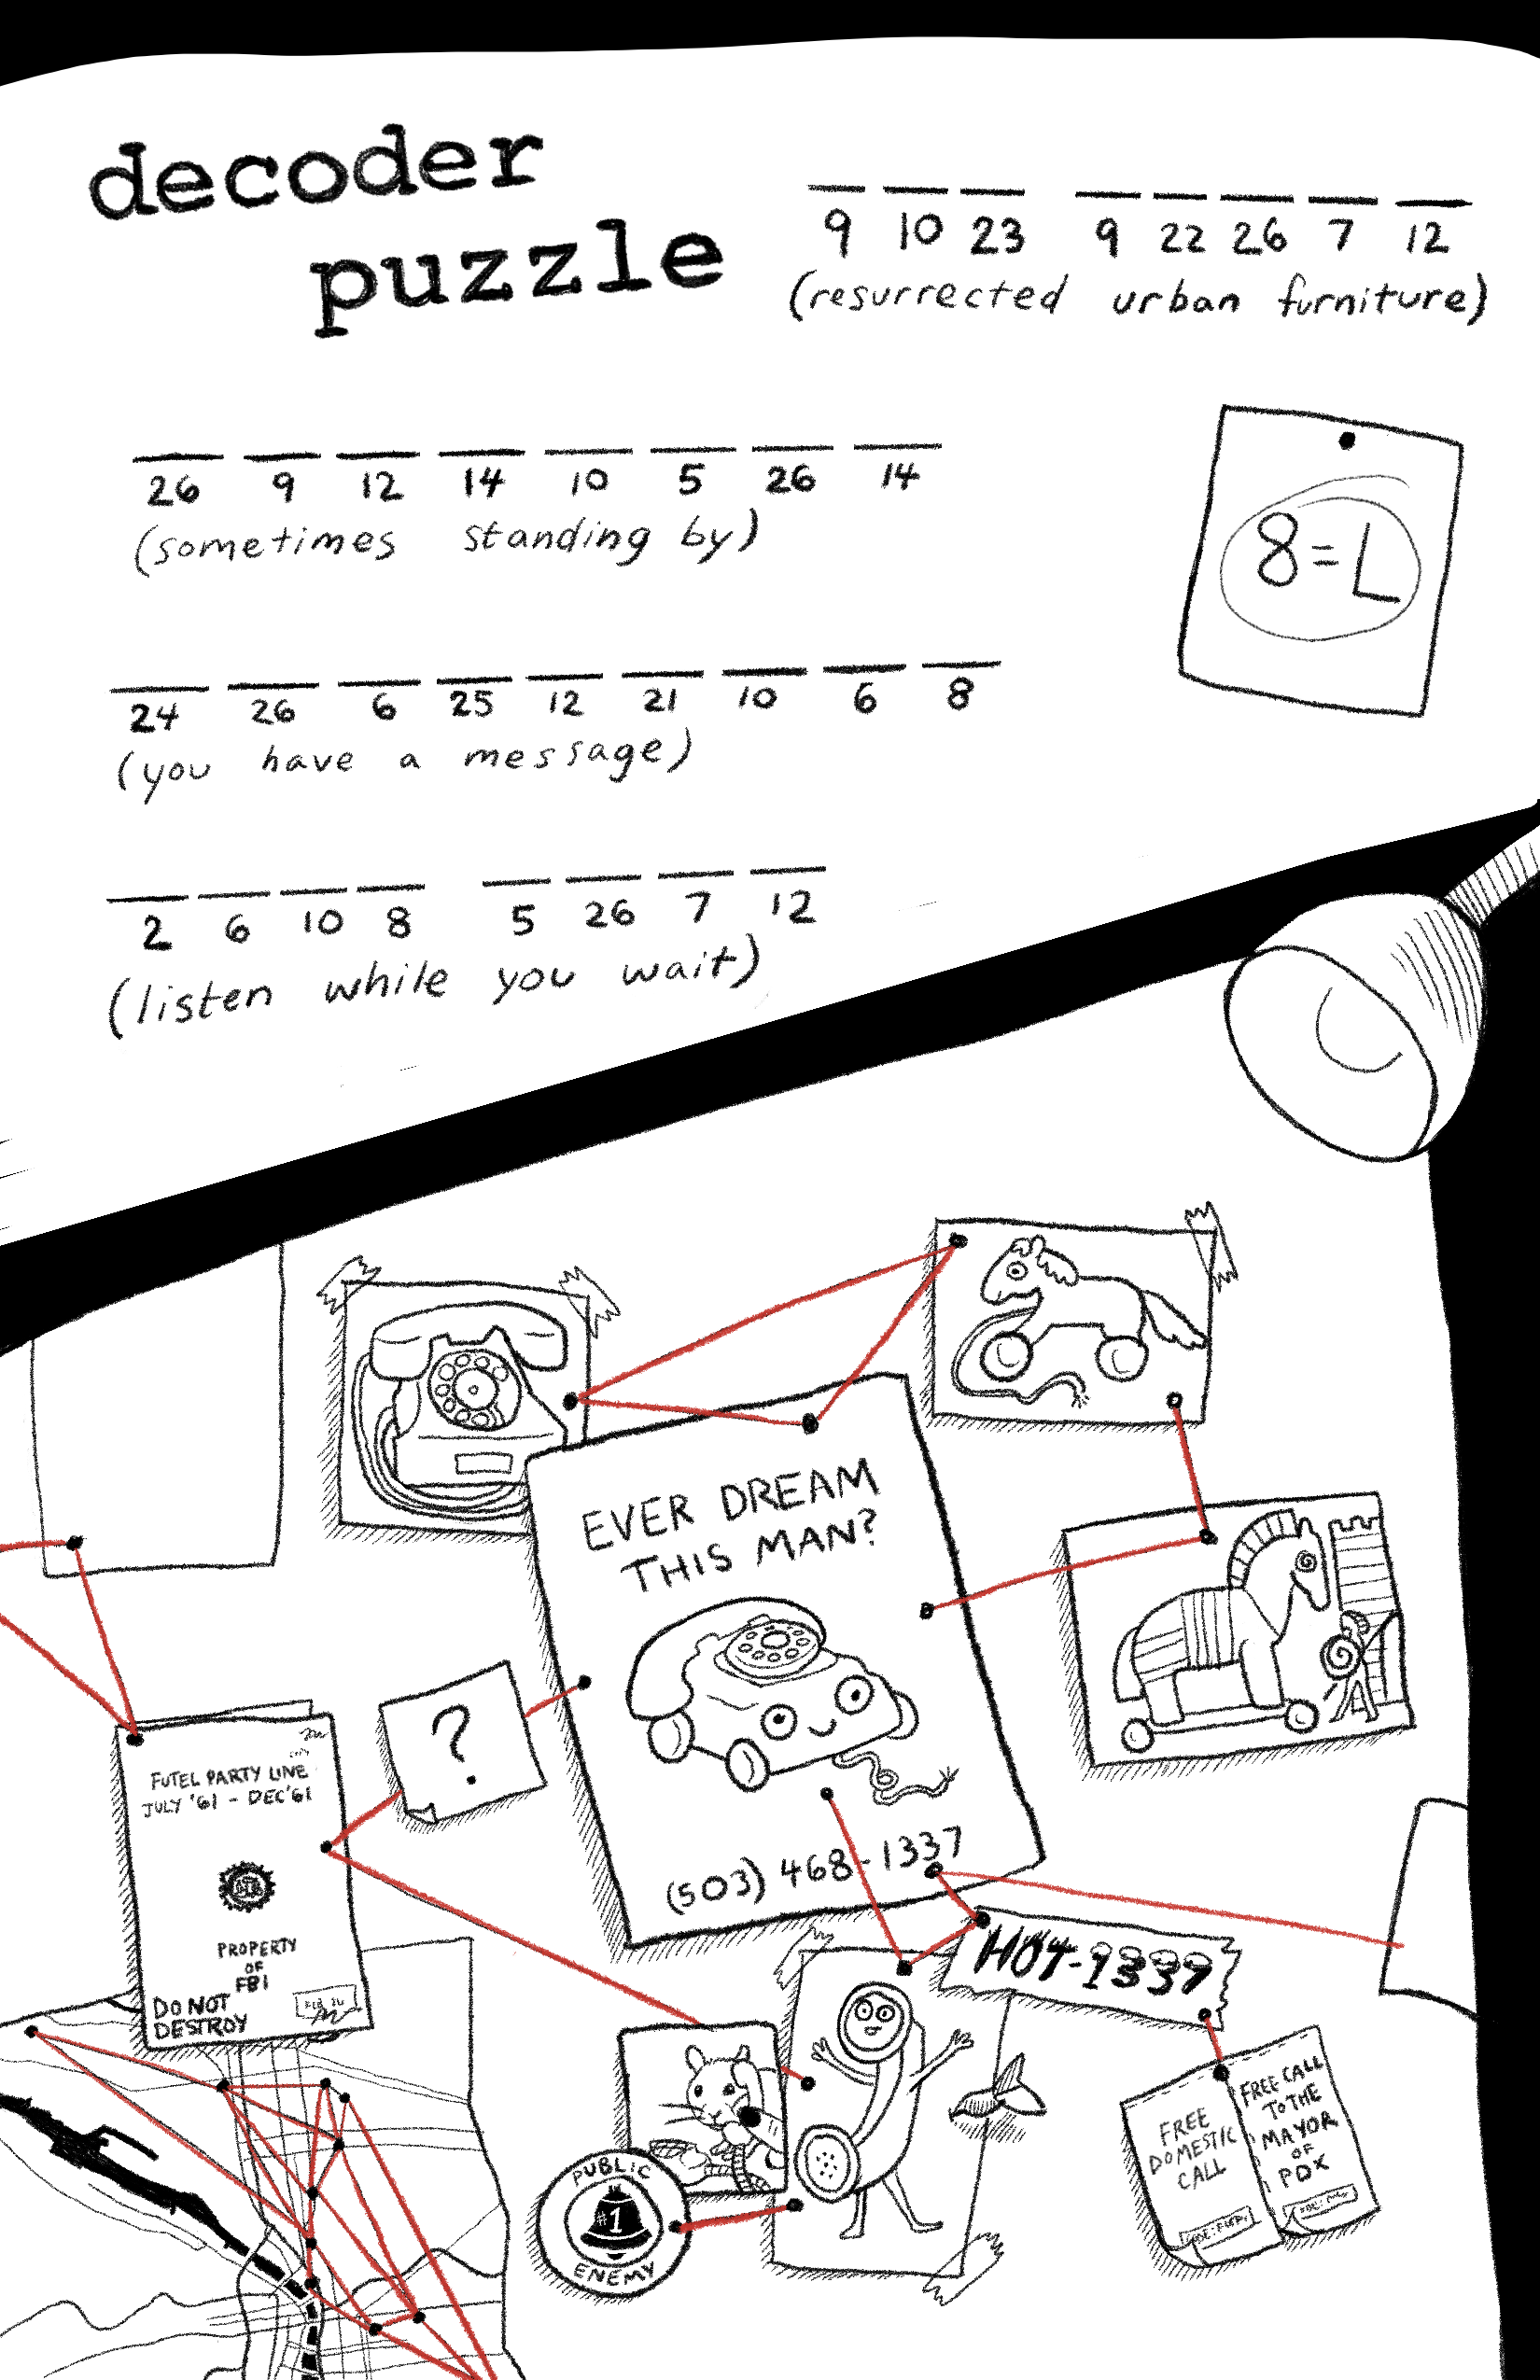 decoder
puzzle
9 10 23 9 22 26 7 12
(resurrected urban furniture)
26 9 12 14 10 5 26 14
(sometimes standing by)
8=L
24 26 6 25 12 21 10 6 8
(you have a message)
2 6 10 8 5 26 7 12
(listen while you wait)
EVER DREAM
THIS MAN?
(503) 468-1337
?
FUTEL PARTY LINE
JULY '61 - DEC '61
PROPERTY
OF
FBI
DO NOT
DESTROY
HOT-1337
PUBLIC
#1
ENEMY
FREE
DOMESTIC
CALL
FREE CALL
TO THE
MAYOR
OF
PDX